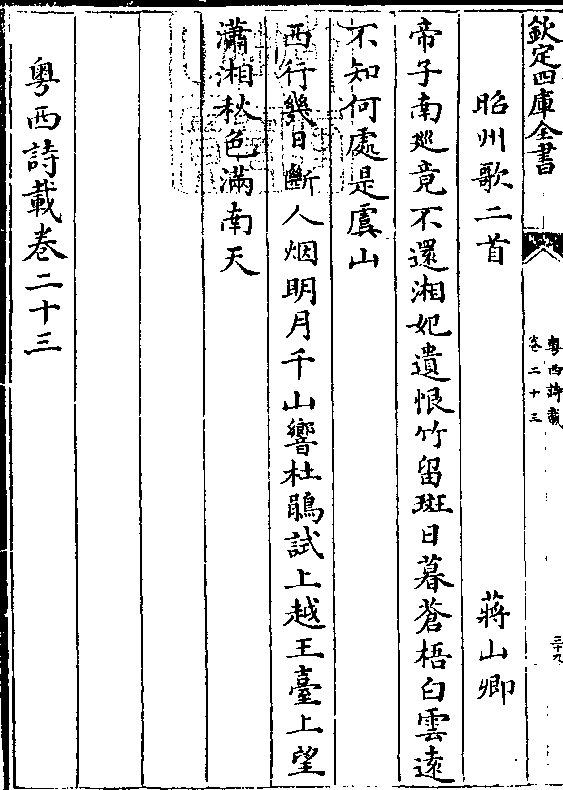 欽定四庫全書
粤西詩載
卷二十三
三十九
昭州歌二首 蔣山卿
帝子南廵竟不還湘妃遺恨竹留斑日暮蒼梧白雲遠
不知何處是虞山
西行幾日斷人烟明月千山響杜鵑試上越王臺上望
瀟湘秋色滿南天
粤西詩載卷二十三